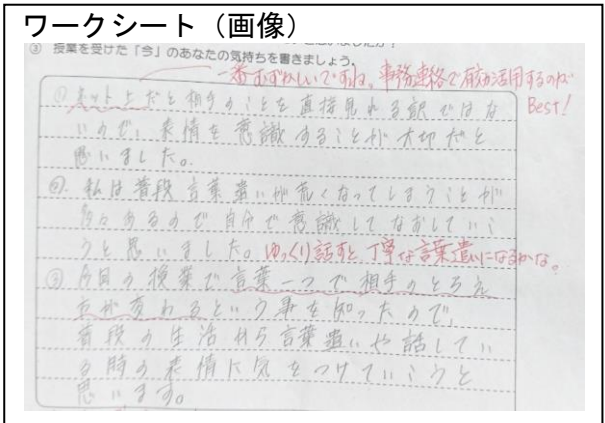 ワークシート（画像）
③ 授業を受けた「今」のあなたの気持ちを書きましょう。
一番むずかしいですね。事務連絡で有効活用するのが
Best!
① ネット上だと相手のことを直接見れる訳ではな
いので、表情を意識することが大切だと
思いました。
②. 私は普段言葉遣いが荒くなってしまうことが
多々あるので自分で意識してなおしていこ
うと思いました。
ゆっくり話すと、丁寧な言葉遣いになるかな。
③ 今日の授業で言葉一つで相手のとらえ
方が変わるという事を知ったので、
普段の生活から言葉遣いや話してい
る時の表情に気をつけていこうと
思います。